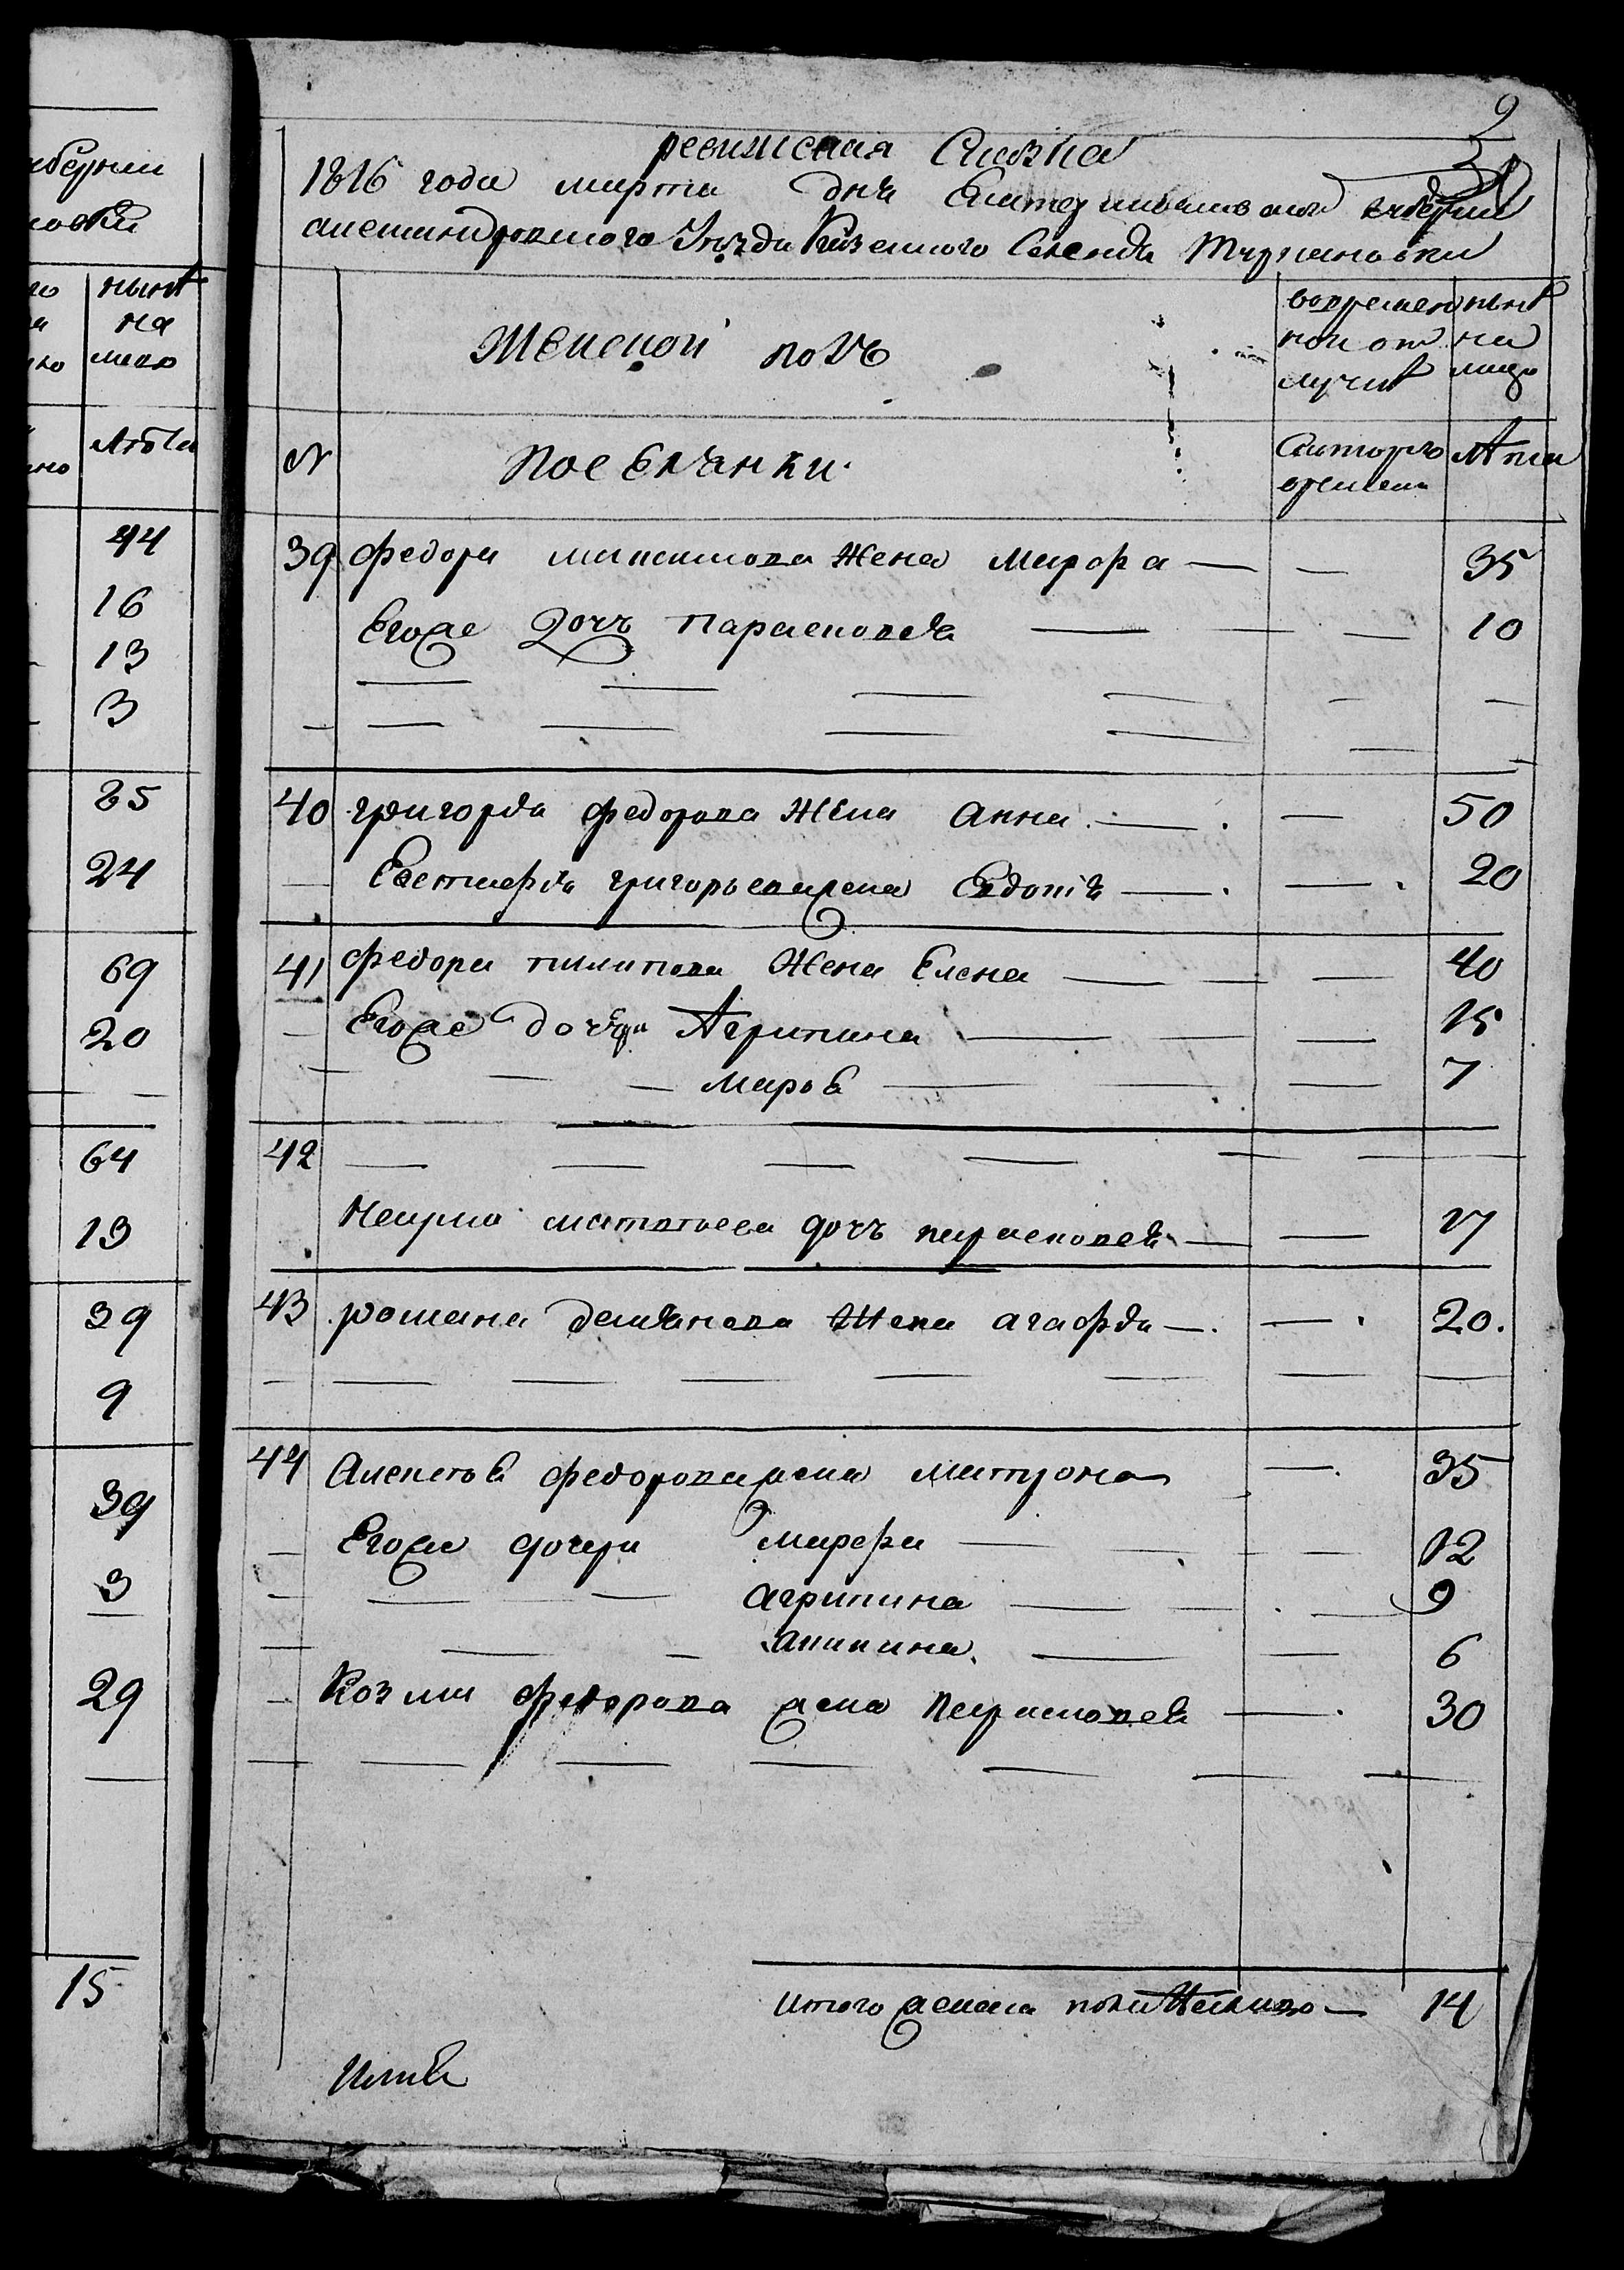 бернии
новки
ныне
на
лицо
лета
44
16
13
3
25
24
69
20
64
13
39
9
39
3
29
15
2
ревижская Сказка
1816 года марта дня Екатеринославской губернии
александровского Уезда Казенного Селения Терновки
Женской полъ
вовременной отлучке
ныне на лицо
№
Поселянки
Скоторго времени
Лета
39 федора максимова жена Марфа — — 35
Егоже Дочъ Парасковея — — 10
40 григория федорова жена Анна — — 50
Евстафия григорьева жена Евдотия — — 20
41 федора пилипова жена Елена — — 40
Егоже дочери Агрипина — — 15
— — Маря — — 7
42 — — — —
матвеева дочъ парасковея — — 17
43 романа демянова жена агафия — — 20.
44 Алексея федорова жена матрона — 35
Егоже дочери марфа — — 12
— — агрипина — — 9
— — акилина — — 6
Козми федорова жена Парасковея — — 30
итого женска пола налицо — 14